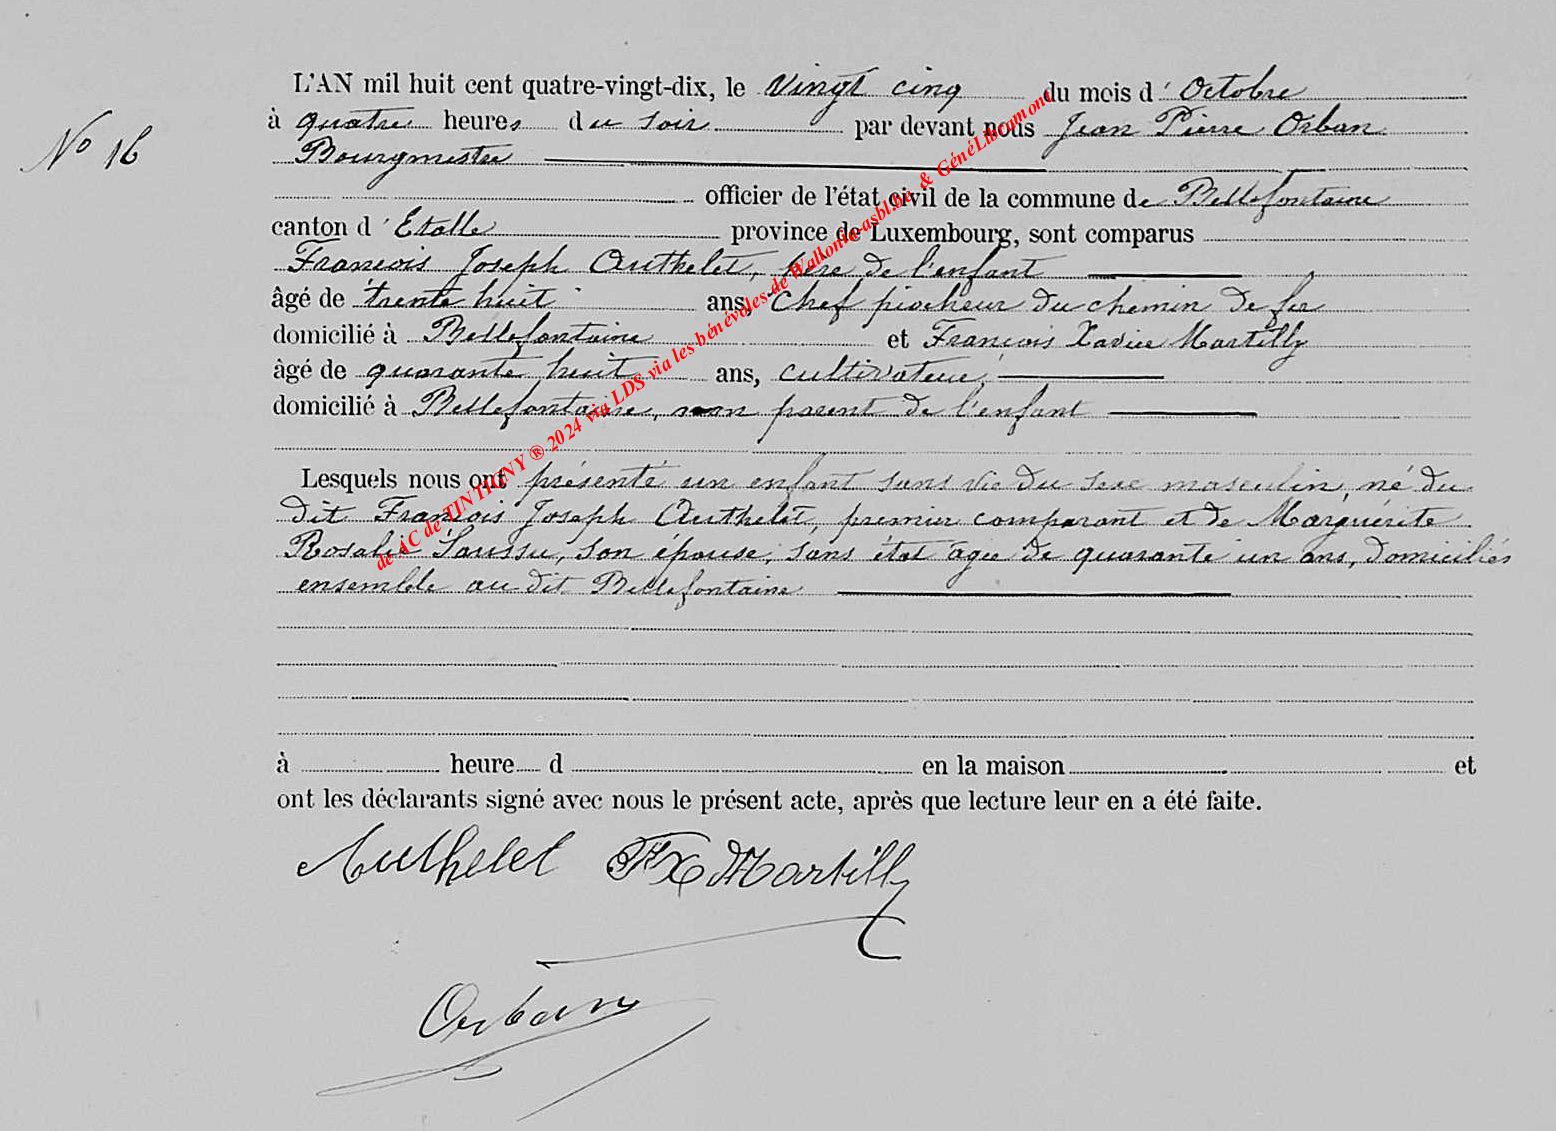 L'AN mil huit cent quatre-vingt-dix, le Vingt cinq du mois d' Octobre
No 16
à quatre heures du soir par devant nous Jean Pierre Orban
Bourgmestre
officier de l'état civil de la commune de Bellefontaine
canton d' Etalle province de Luxembourg, sont comparus
François Joseph Authelet, père de l'enfant
âgé de trente huit ans, Chef piocheur du chemin de fer
domicilié à Bellefontaine et François Xavier Martilly
âgé de quarante huit ans, cultivateur,
domicilié à Bellefontaine, non parent de l'enfant
Lesquels nous ont présenté un enfant sans vie du sexe masculin, né du
dit François Joseph Authelet, premier comparant et de Marguérite
Rosalie, son épouse, sans état agée de quarante un ans, domiciliés
ensemble au dit Bellefontaine
à heure d en la maison et
ont les déclarants signé avec nous le présent acte, après que lecture leur en a été faite.
Authelet FX Martilly
Orban
de AC de TINTIGNY ® 2024 via LDS via les bénévoles de Wallonia-asbl.be & GénéLibramont